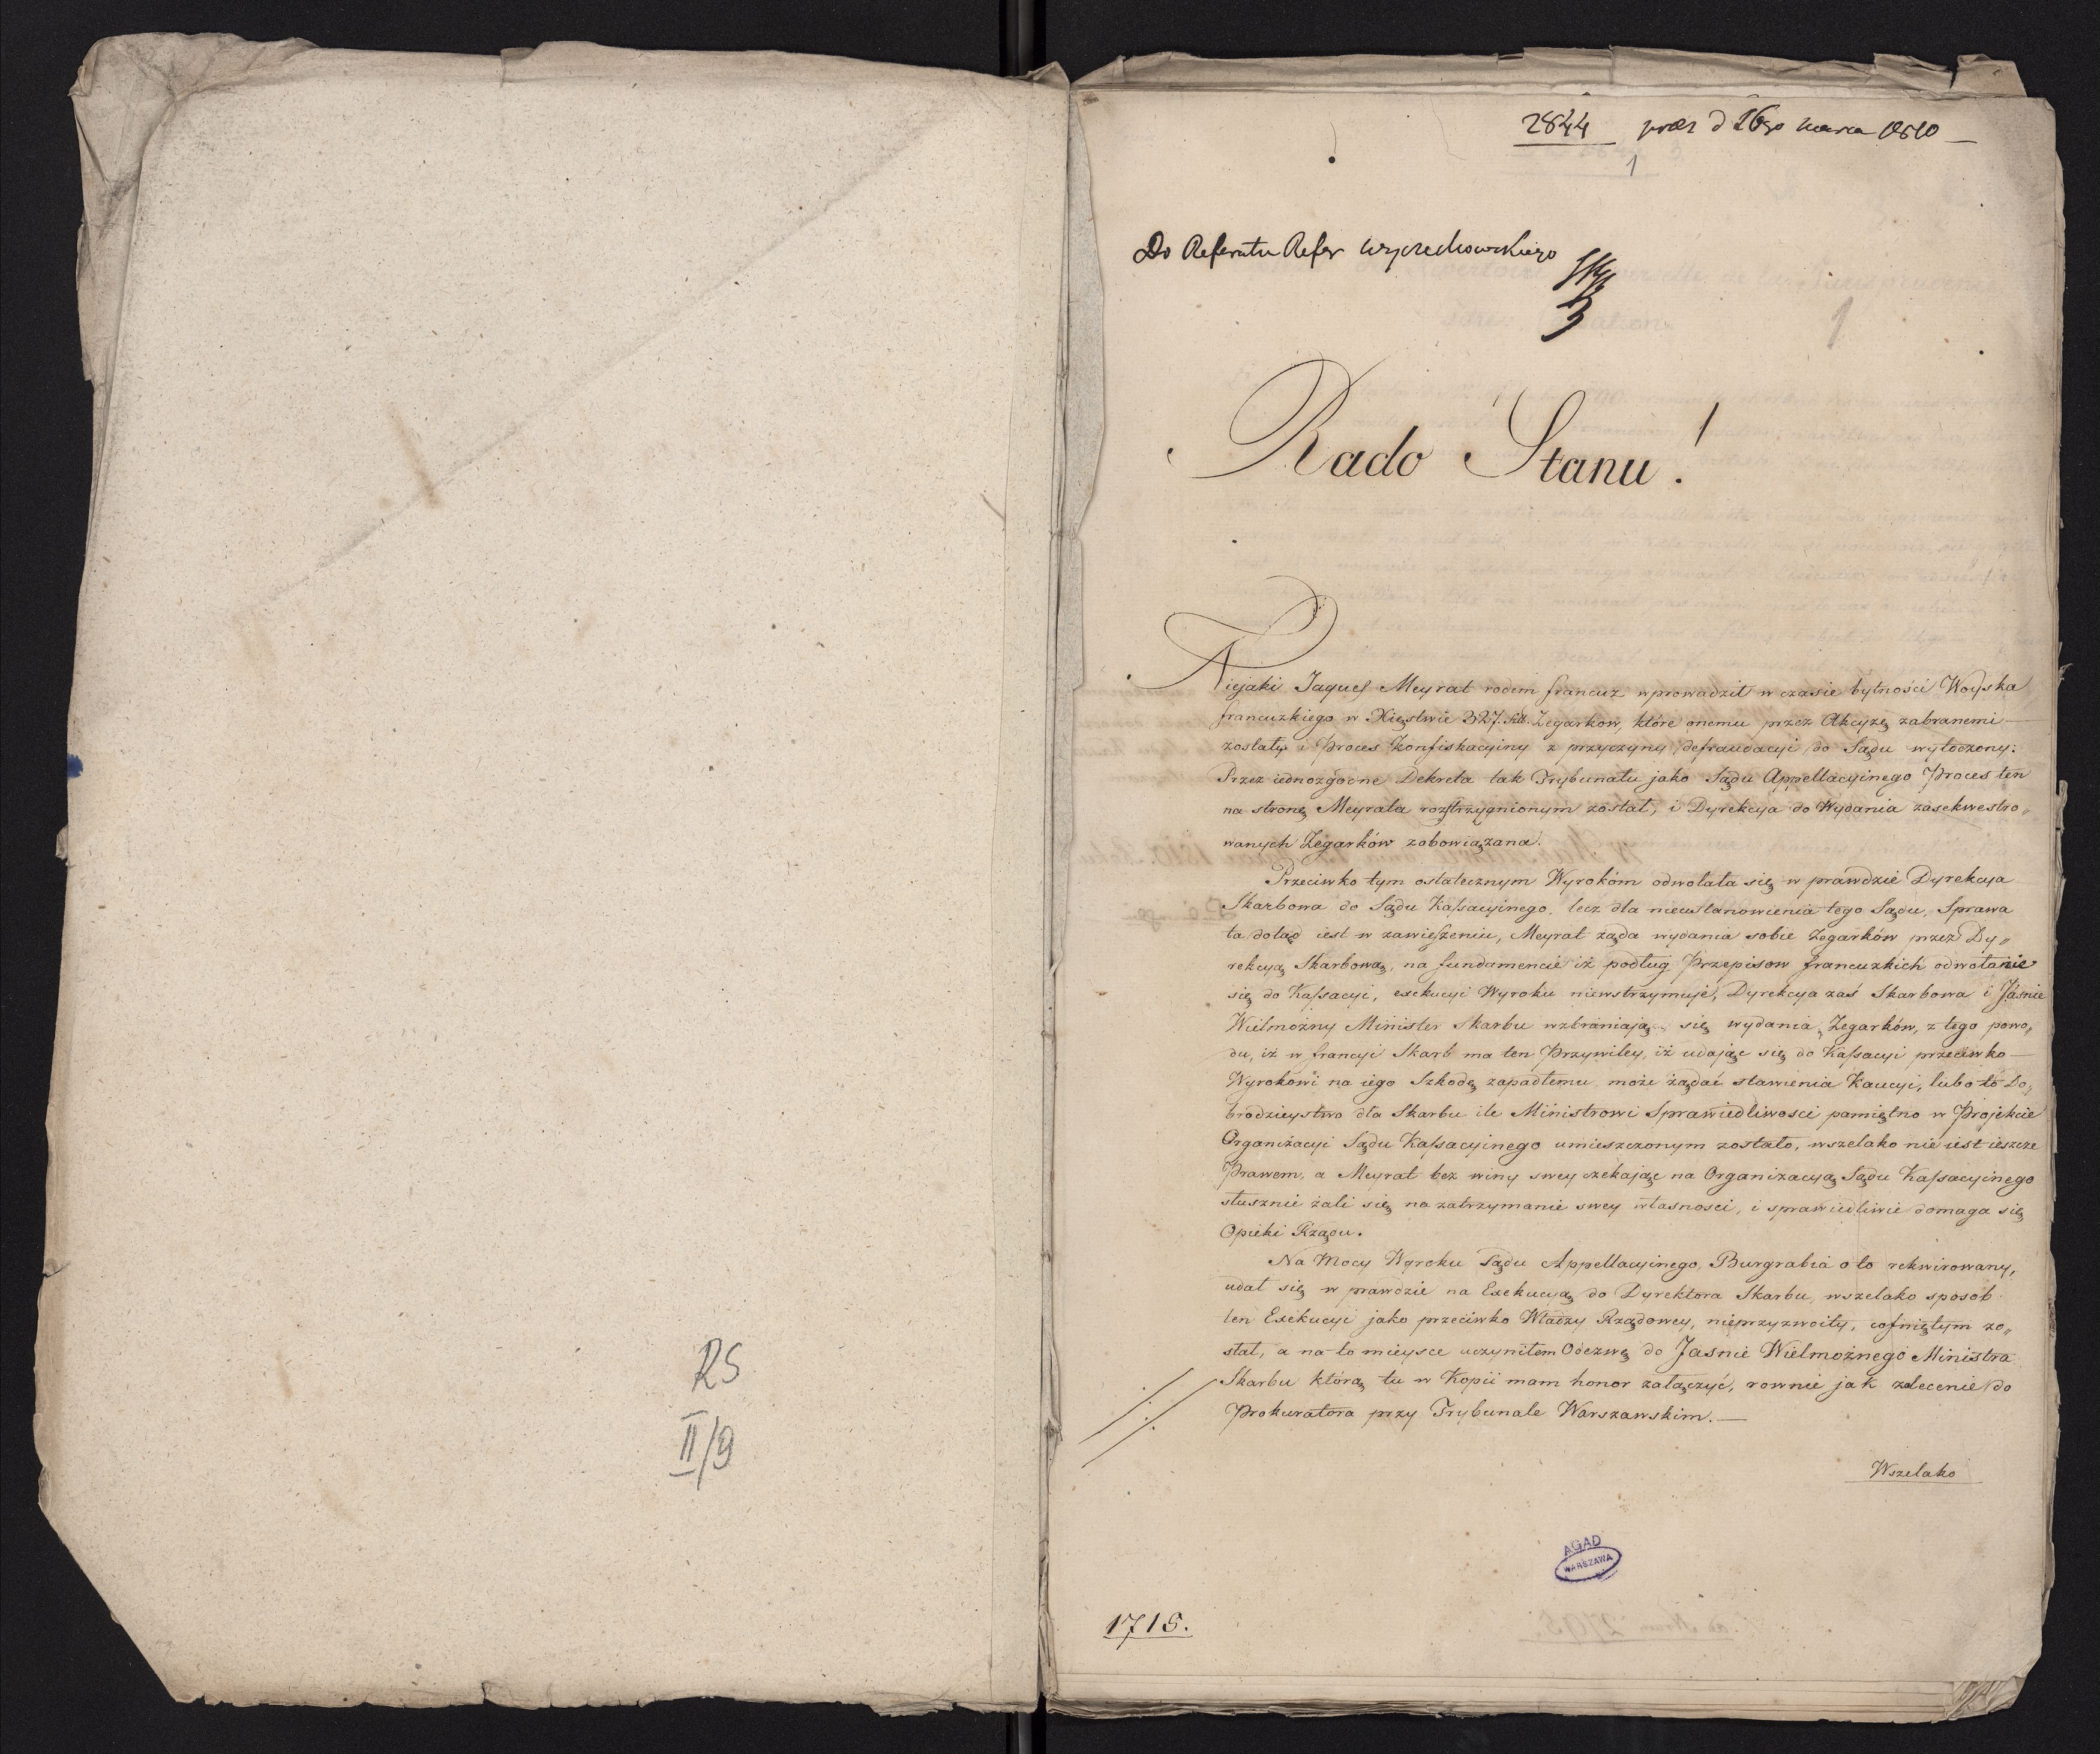 RS
II/9
2844 præs d 16go marca 1810
1
Do Referatu Refer Wyczechowskiego
1
Rado Stanu!
Niejaki Jaques Meyrat rodem francuz wprowadził w czasie bytności Woyska
francuzkiego w Xięstwie 327. Sztk. Zegarkow, które onemu przez Akcyzę zabranemi
zostały i Proces Konfiskacyiny z przyczyny defraudacyi do Sądu wytoczony:
Przez iednozgodne Dekreta tak Trybunału jako Sądu Appellacyinego Proces ten
na stronę Meyrata rozstrzygnionym został, i Dyrekcya do Wydania zasekwestro„
wanych Zegarków zobowiązana.
Przeciwko tym ostatecznym Wyrokóm odwołała się w prawdzie Dyrekcya
Skarbowa do Sądu Kassacyinego. lecz dla nieustanowienia tego Sądu, Sprawa
ta dotąd iest w zawieszeniu, Meyrat żąda wydania sobie Zegarków przez Dy„
rekcyą Skarbową, na fundamencie iż podług Przepisow francuzkich odwołanie
się do Kassacyi, exekucyi Wyroku niewstrzymuje, Dyrekcya zaś Skarbowa i Jaśnie
Wielmożny Minister Skarbu wzbraniają się wydania Zegarków, z tego powo„
du, iż w francyi Skarb ma ten Przywiley, iż udając się do Kassacyi przeciwko
Wyrokowi na iego Szkodę zapadłemu może żądać stawienia Kaucyi, lubo to Do„
brodzieystwo dla Skarbu ile Ministrowi Sprawiedliwosci pamiętno w Projekcie
Organizacyi Sądu Kassacyinego umieszczonym zostało, wszelako nie iest ieszcze
Prawem, a Meyrat bez winy swey czekając na Organizacyą Sądu Kassacyinego
słusznie żali się na zatrzymanie swey własnosci, i sprawiedliwie domaga się
Opieki Rządu.
Na Mocy Wyroku Sądu Appellacyinego, Burgrabia o to rekwirowany,
udał się w prawdzie na Exekucyą do Dyrektora Skarbu, wszelako sposob
ten Exekucyi jako przeciwko Władzy Rządowey, nieprzyzwoity, cofniętym zo„
stał, a na to mieysce uczyniłem Odezwę do Jasnie Wielmożnego Ministra
Skarbu którą tu w Kopii mam honor załączyć, rownie jak zalecenie do
Prokuratora przy Trybunale Warszawskim.
Wszelako
AGAD
WARSZAWA
1715.